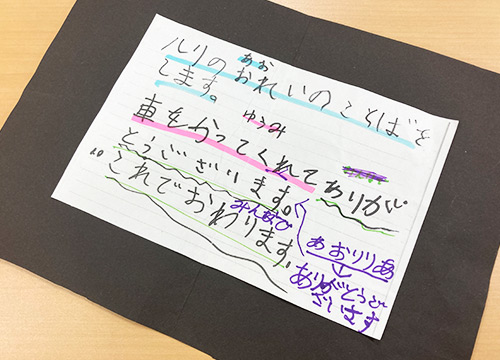 あお
ハリのおれいのことばを
します。
ゆうみ
車をかってくれてありが
とうございます。
みんなで
これでおわります。
あおりりあ
ありがとうご
ざいます